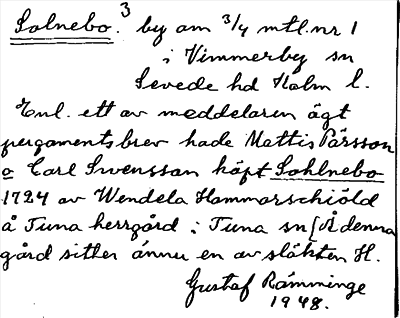 Solnebo.³ by om ¾ mtl. nr 1
i Vimmerby sn
Sevede hd Kalm l.
Enl. ett av meddelaren ägt
pergamentsbrev hade Mattis Pärsson
o Carl Swensson köpt Sohlnebo
1724 av Wendela Hammarschiöld
å Tuna herrgård i Tuna sn [Å denna
gård sitter ännu en av släkten H.
Gustaf Rämminge
1948.